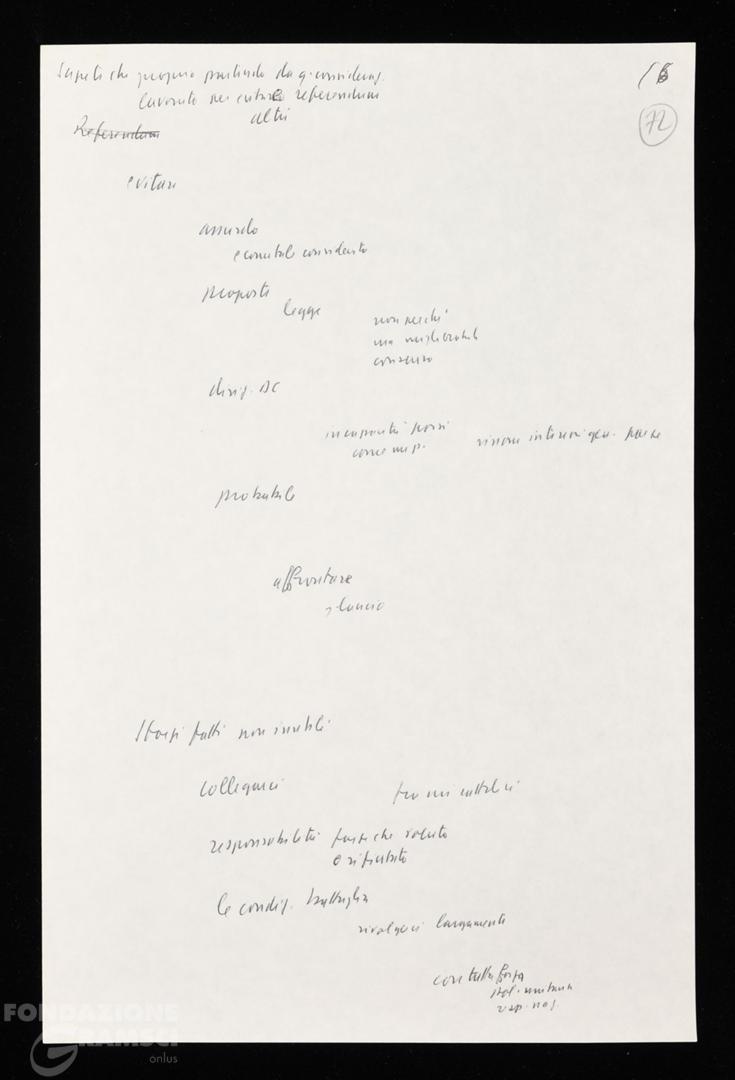 Sapete che proprio partendo da q. consideraz.
lavorato per evitare referendum
altri
Referendum
16
72
evitare
assurdo
e comitato considerato
proposte
legge
non perché
ma migliorabile
consenso
dirig. DC
incapacità porsi
come
visione interessi gen. paese
probabile
affrontare
slancio
Sforzi fatti non inutili
collegarci
fra noi cattolici
responsabilità forze che voluto
e rifiutato
le condiz. battaglia
rivolgerci largamente
con tutta forza
pol. unitaria
rap. naz.
FONDAZIONE
GRAMSCI
onlus